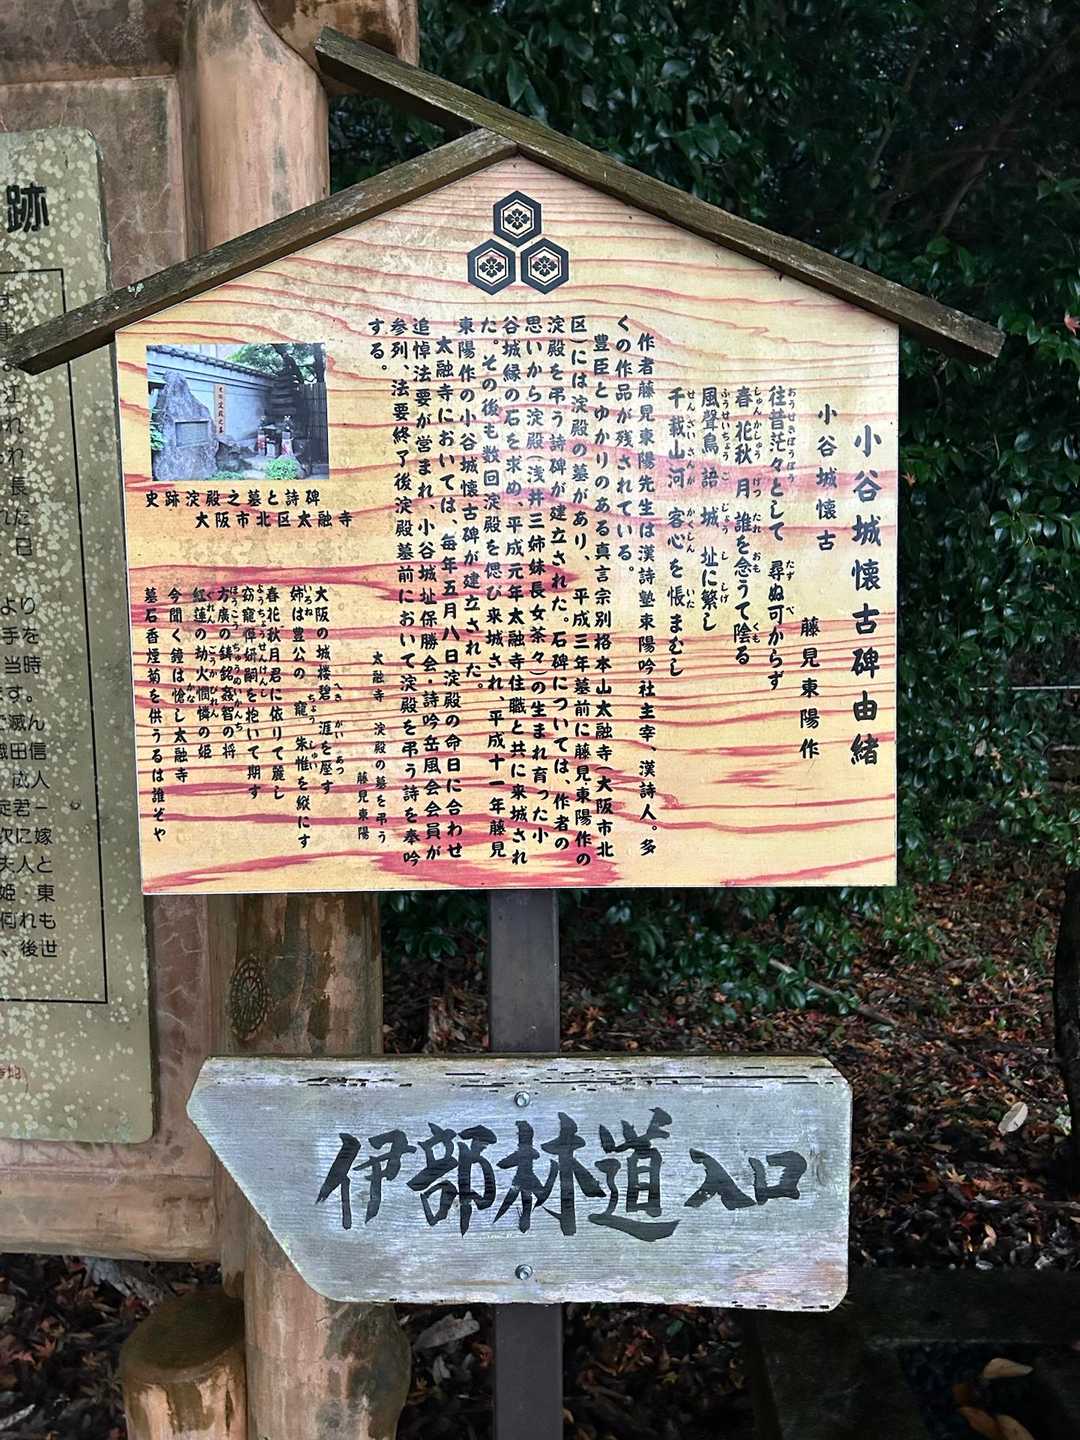 小谷城懐古碑由緒
小谷城懐古
藤見東陽作
往昔茫々として 尋ぬ可からず
春花秋月 誰を念うて陰る
風聲鳥語 城址に繁し
千載山河 客心を悵まむし
作者藤見東陽先生は漢詩塾東陽吟社主宰、漢詩人。多
くの作品が残されている。
豊臣とゆかりのある真言宗別格本山太融寺(大阪市北
区)には淀殿の墓があり、平成三年墓前に藤見東陽作の
淀殿を弔う詩碑が建立された。石碑については、作者の
思いから淀殿(浅井三姉妹長女茶々)の生まれ育った小
谷城縁の石を求め、平成元年太融寺住職と共に来城され
た。その後も数回淀殿を偲び来城され、平成十一年藤見
東陽作の小谷城懐古碑が建立された。
太融寺においては、毎年五月八日淀殿の命日に合わせ
追悼法要が営まれ、小谷城址保勝会・詩吟岳風会会員が
参列、法要終了後淀殿墓前において淀殿を弔う詩を奉吟
する。
史跡淀殿之墓と詩碑
大阪市北区太融寺
太融寺 淀殿の墓を弔う
藤見東陽
大阪の城楼碧涯を圧す
姉は豊公の寵 朱帷を縦にす
春花秋月君に依りて麗し
窈窕嬋妍嗣を抱いて期す
方廣の鋳銘姦智の将
紅蓮の劫火憫憐の姫
今聞く鐘は愴し太融寺
墓石香煙菊を供うるは誰ぞや
伊部林道入口
跡